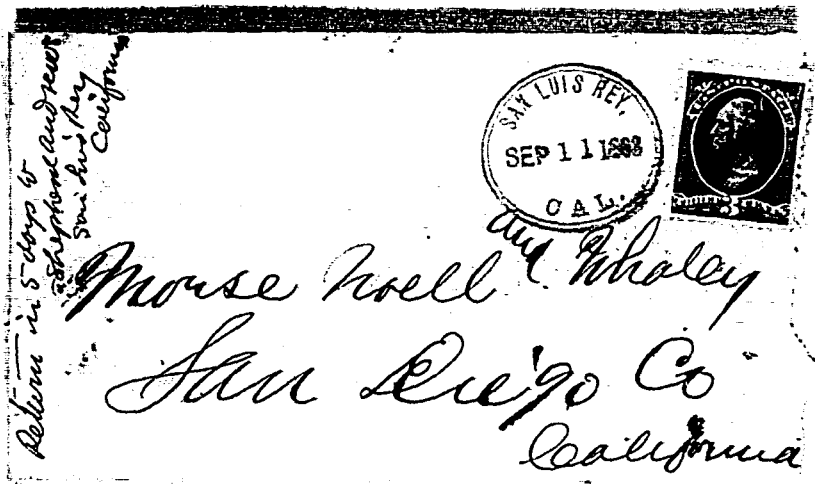 Return in 5 days to
Stephen Andrews
San Luis Rey
California
SAN LUIS REY,
SEP 11 1883
CAL.
3
Mouse Noell and Whaley
San Diego Co
California